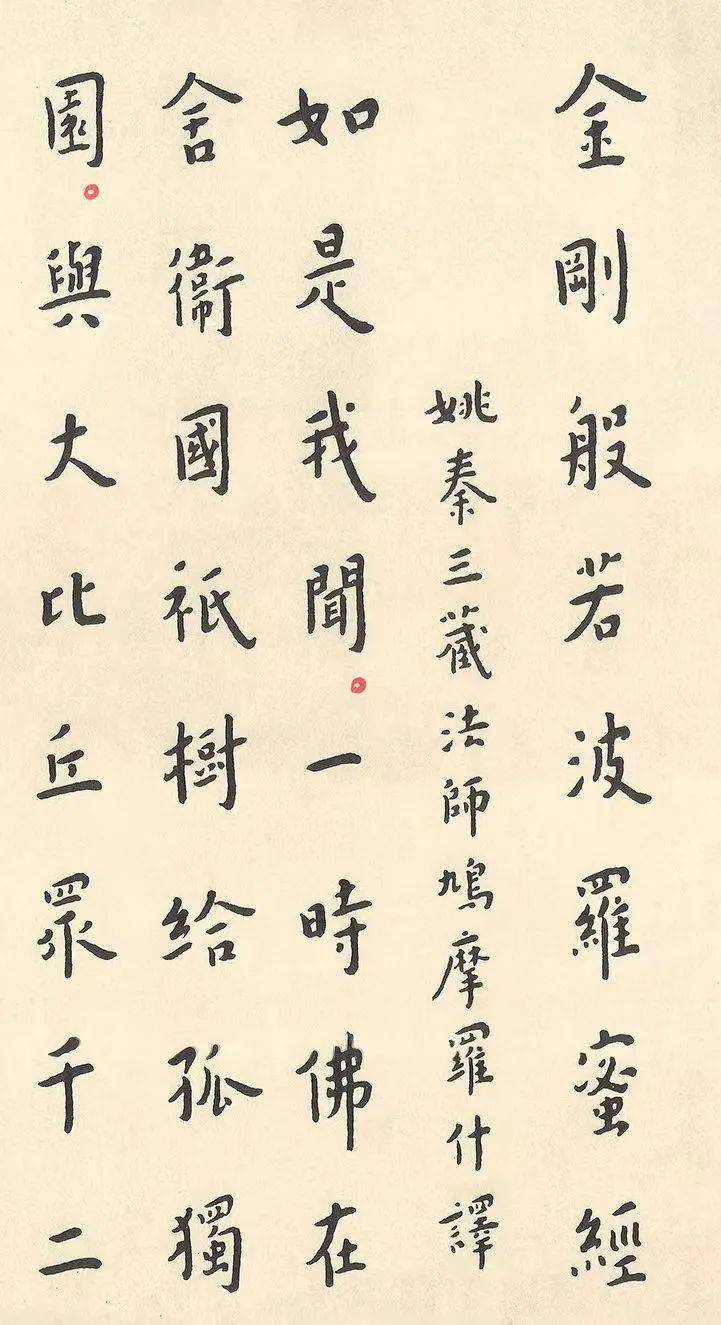 金剛般若波羅蜜經
姚秦三藏法師鳩摩羅什譯
如是我聞。一時佛在
舍衞國祇樹給孤獨
園。與大比丘眾千二